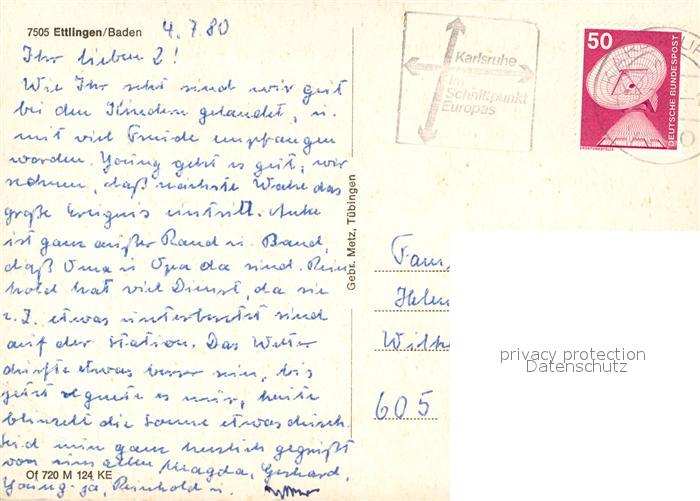 7505 Ettlingen/Baden 4.7.80
Ihr lieben 2!
Wie Ihr seht sind wir gut
bei den Kindern gelandet, u.
mit viel Freude empfangen
worden. Young geht es gut, wir
rechnen, daß nächste Woche das
große Ereignis eintritt. Anke
ist ganz außer Rand u. Band,
daß Oma u Opa da sind. Rein
hold hat viel Dienst, da sie
z. Z. etwas unterbesetzt sind
auf der Station. Das Wetter
dürfte etwas besser sein, bis
jetzt regnete es nur, heute
blinzelt die Sonne etwas durch.
Seid nun ganz herzlich gegrüßt
von uns allen Magda, Gerhard,
Young-ja, Reinhold u.
Of 720 M 124 KE
Gebr. Metz, Tübingen
Karlsruhe
im
Schnittpunkt
Europas
50
DEUTSCHE BUNDESPOST
ERDEFUNKSTELLE
Fam.
Helm
Wilh
605
privacy protection
Datenschutz